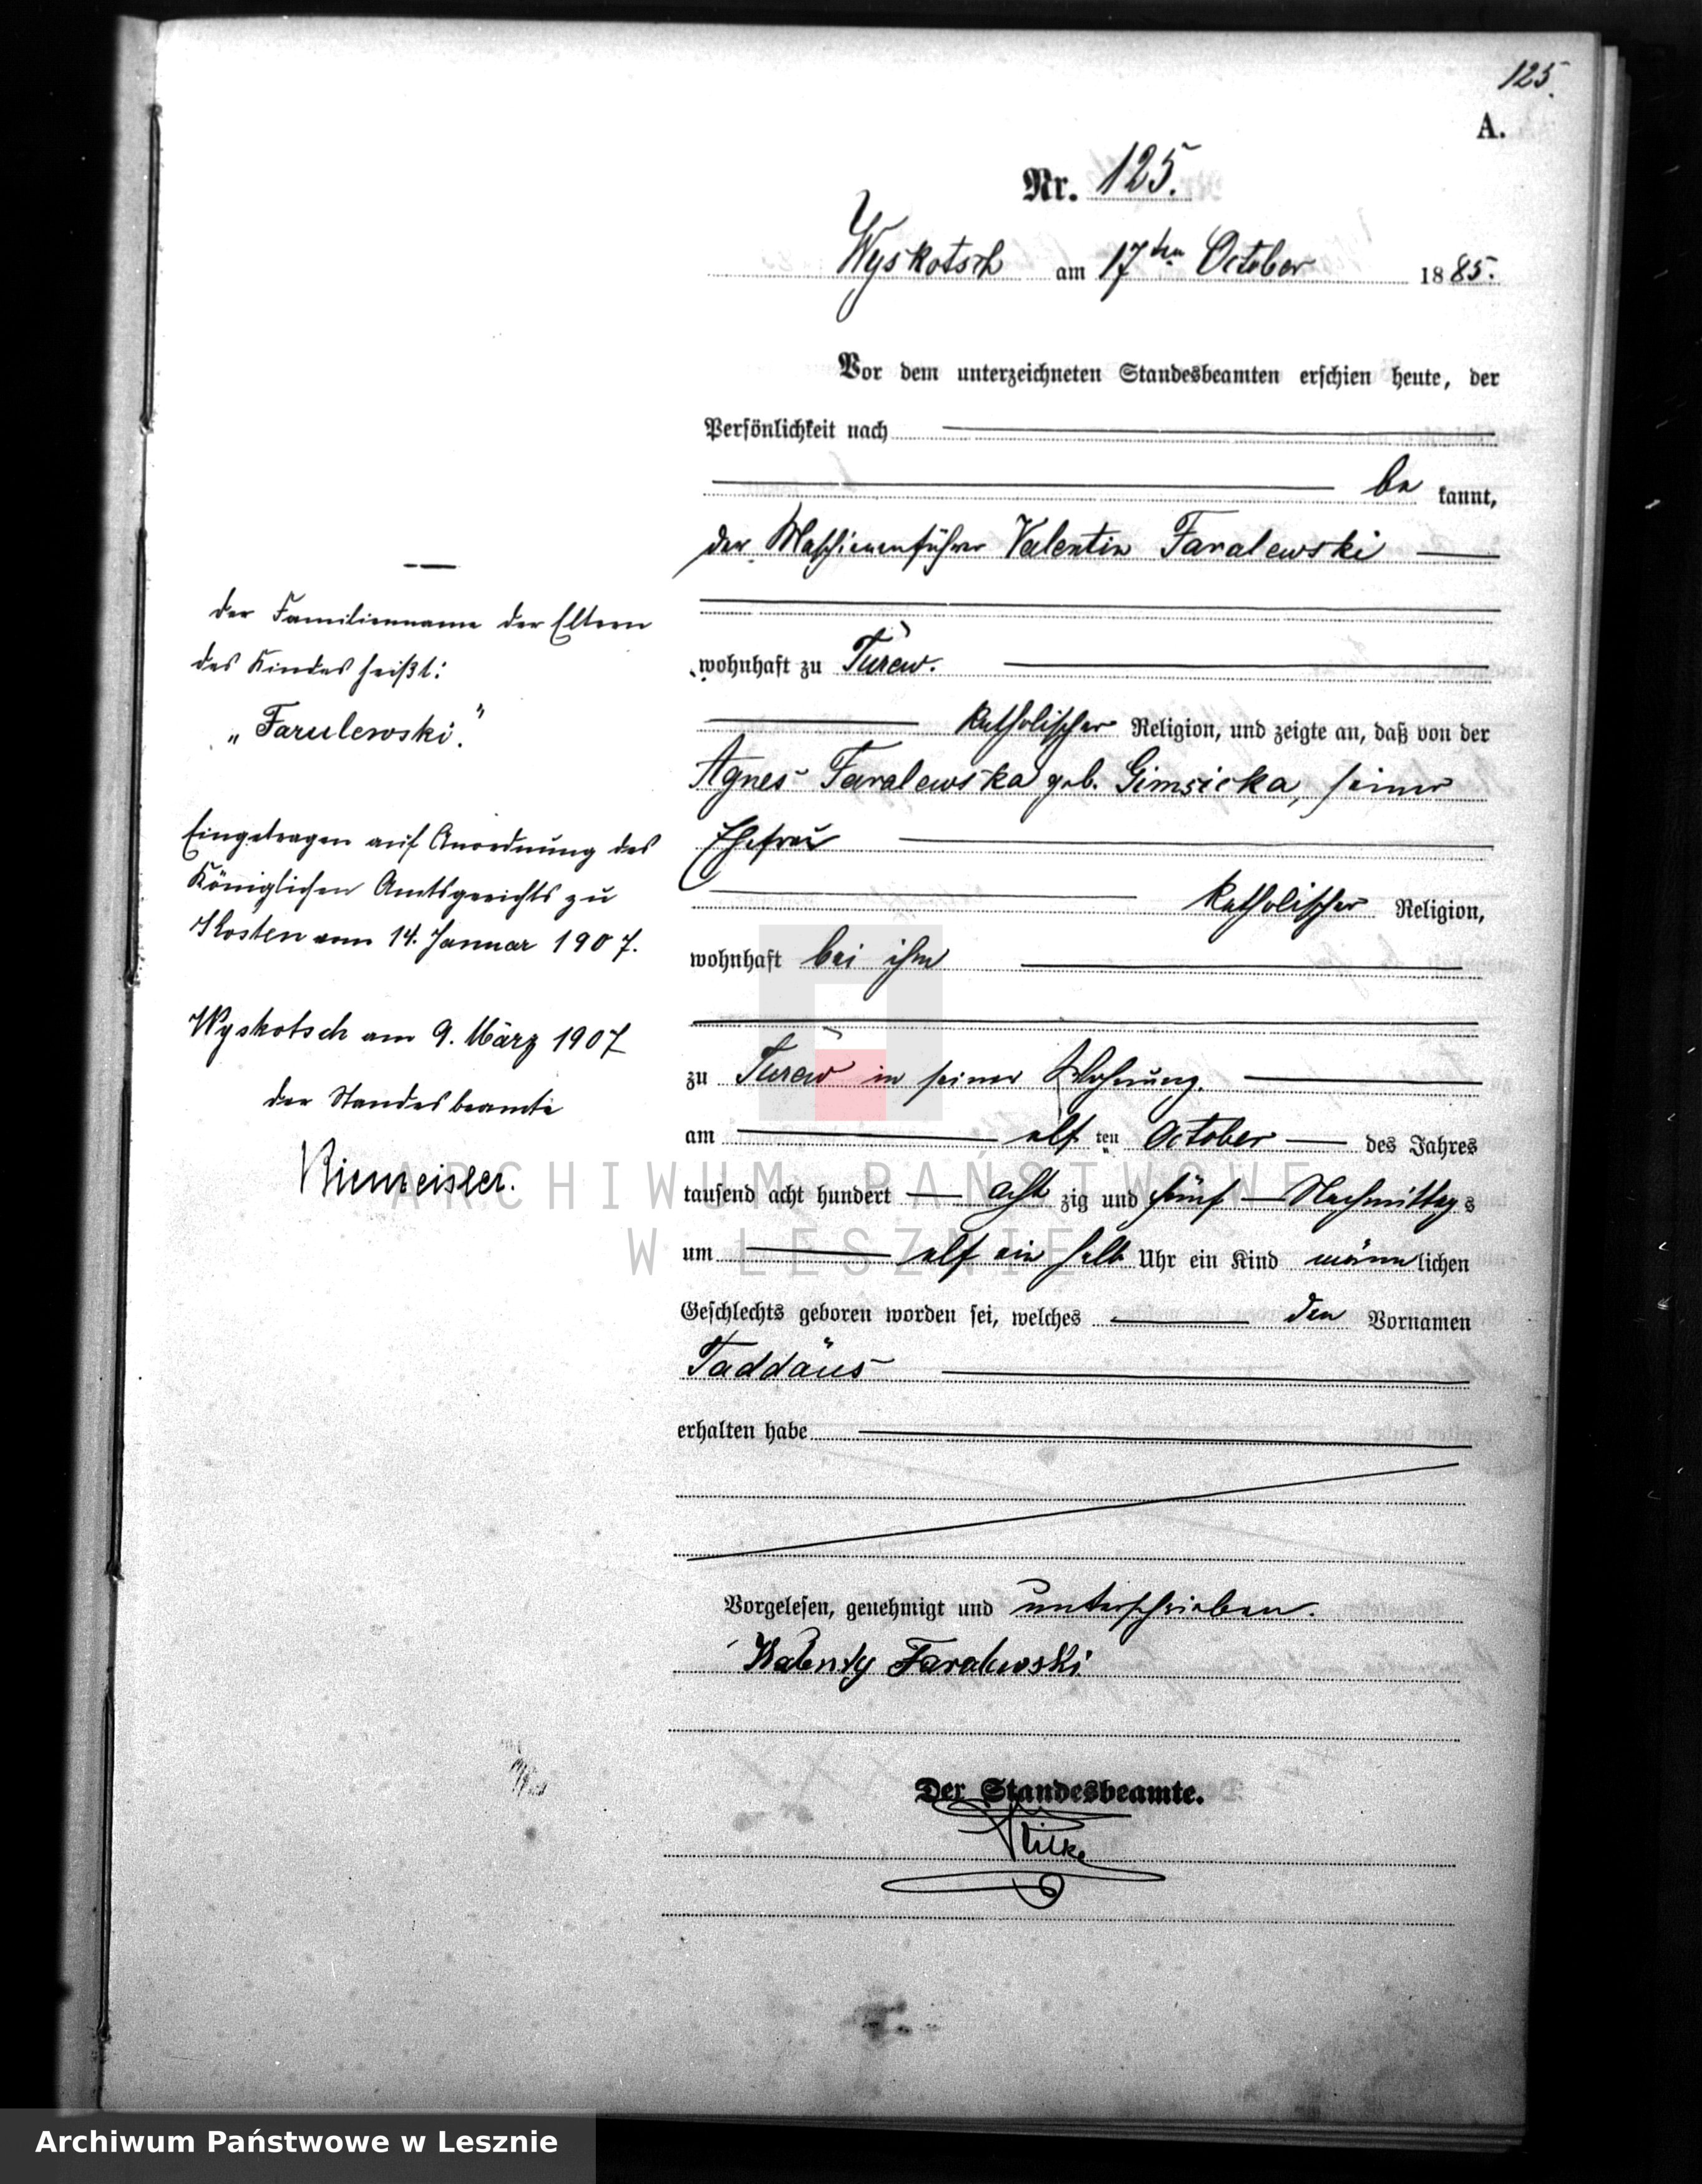 125.
A.
Nr. 125.
Wyskotsch am 17ten October 1885.
Vor dem unterzeichneten Standesbeamten erschien heute, der
Persönlichkeit nach
be kannt,
der Maschienenführer Valentin Faralewski
wohnhaft zu Turew.
katholischer Religion, und zeigte an, daß von der
Agnes Faralewska geb. Gimzicka, seiner
Ehefrau
katholischer Religion,
wohnhaft bei ihm
zu Turew in seiner Wohnung.
am elf ten October des Jahres
tausend acht hundert acht zig und fünf Nachmittags
um elf ein halb Uhr ein Kind männlichen
Geschlechts geboren worden sei, welches den Vornamen
Taddäus
erhalten habe
Vorgelesen, genehmigt und unterschrieben.
Walenty Faralewski
Der Standesbeamte.
der Familienname der Eltern
des Kindes heißt:
„Farulewski."
Eingetragen auf Anordnung des
Königlichen Amtsgerichts zu
Kosten vom 14. Januar 1907.
Wyskotsch am 9. März 1907
der Standesbeamte
ARCHIWUM PAŃSTWOWE
W LESZNIE
Archiwum Państwowe w Lesznie